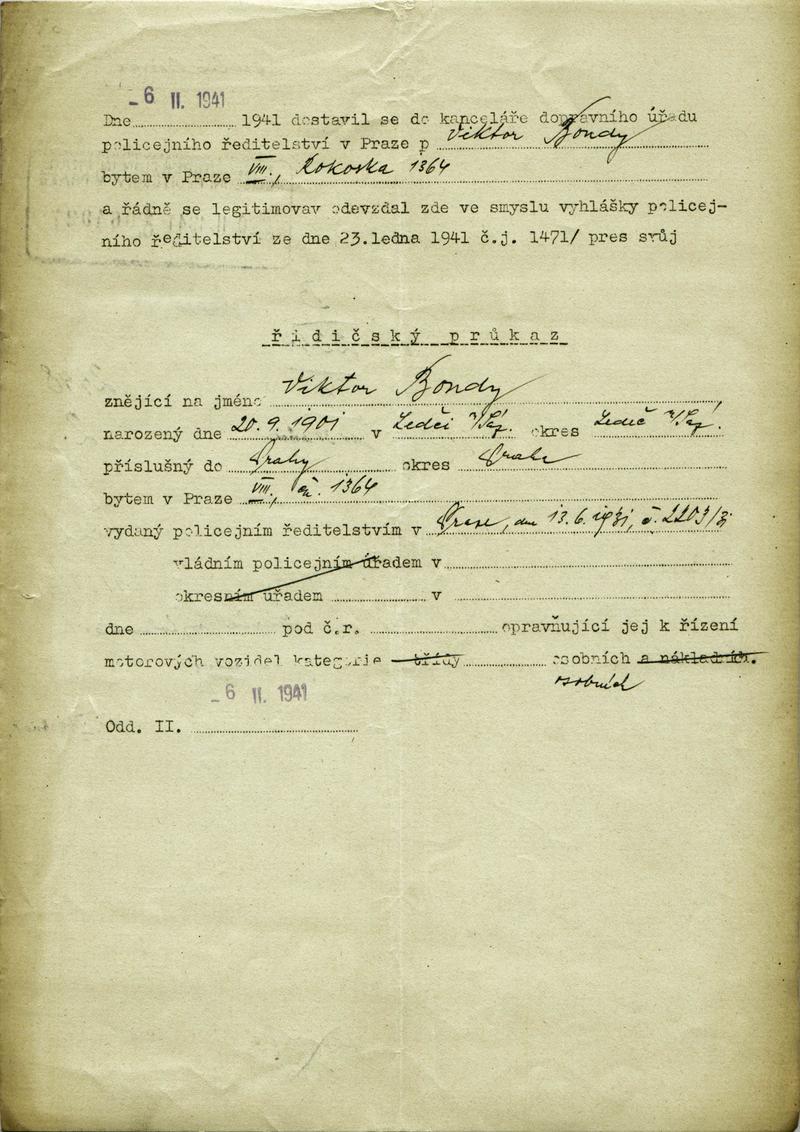 -6 II. 1941
Dne 1941 dostavil se do kanceláře dopravního úřadu
policejního ředitelství v Praze p Viktor Bondy
bytem v Praze VIII., Rokoska 1364
a řádně se legitimovav odevzdal zde ve smyslu vyhlášky policej-
ního ředitelství ze dne 23.ledna 1941 č.j. 1471/ pres svůj
řidičský průkaz
znějící na jméno Viktor Bondy,
narozený dne 20.9.1901 v Ledči n/Sáz. okres Ledeč n/Sáz.
příslušný do Prahy okres Praha
bytem v Praze VIII. čp. 1364
vydaný policejním ředitelstvím v Praze, dne 13.6.1931, č. 2203/31
vládním policejním úřadem v
okresním úřadem v
dne pod č.r. opravňující jej k řízení
motorových vozidel kategorie třídy osobních a nákladních.
osobních
-6 II. 1941
Odd. II.